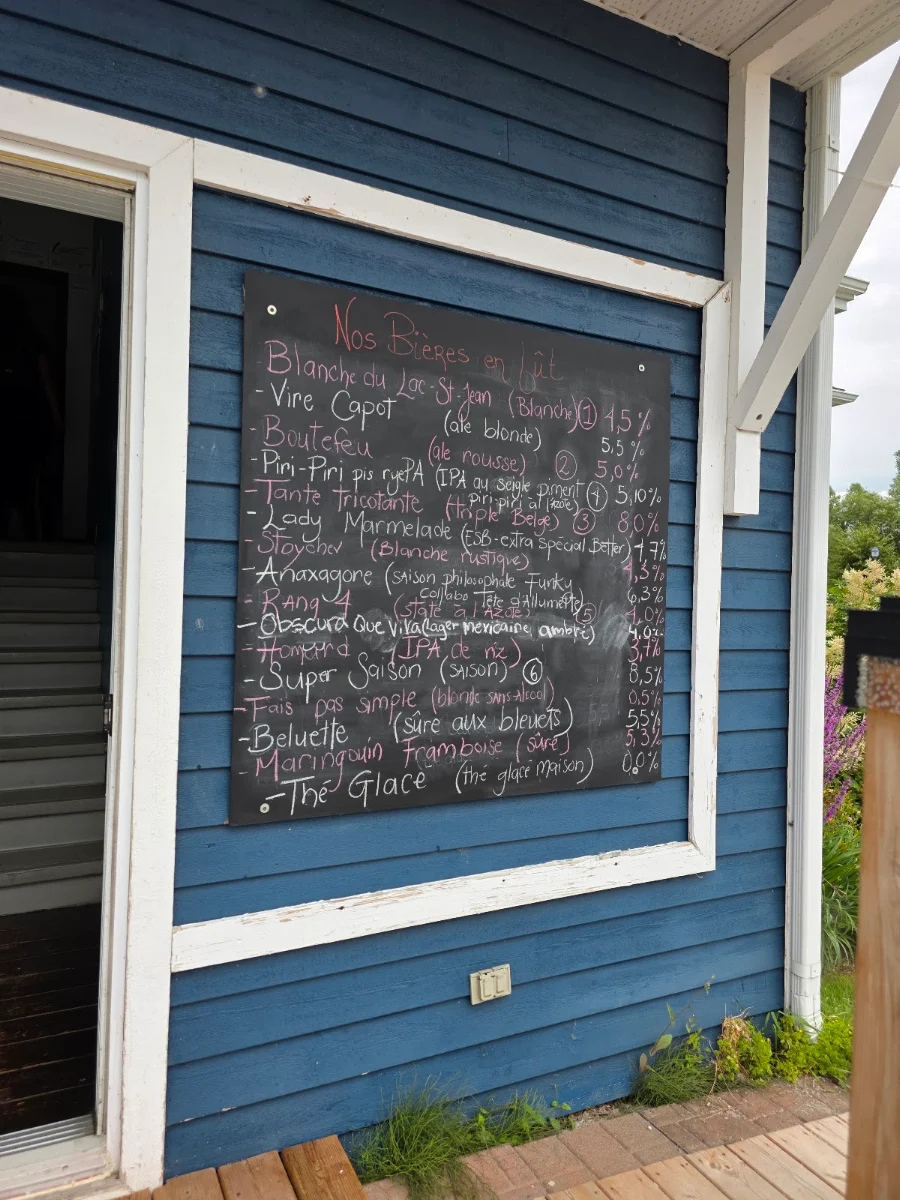 Nos Bières en fût
Blanche du Lac-St-Jean (Blanche) 1 4,5 %
- Vire Capot (ale blonde) 5,5 %
- Boutefeu (ale rousse) 2 5,0%
- Piri-Piri pis ryePA (IPA au seigle piment 4 5,10%
piri-piri à l'Azote)
- Tante tricotante (triple Belge) 3 8,0%
- Lady Marmelade (ESB-extra Special Better) 4,7%
- Stoycher (Blanche rustique) 4,3%
- Anaxagore (saison philosophale Funky 6,3%
collabo Tête d'Allumette)
- Rang 4 (state à l'Azote) 5 4,0%
- Obscura Que Viva (lager mexicaine ambré)
- (IPA de riz) 3,7%
- Super Saison (saison) 6 8,5%
- Fais pas simple (blonde sans-Alcool) 0,5%
- Beluette (sûre aux bleuets) 5,5%
- Maringouin Framboise (sûre) 5,3%
- Thé Glacé (thé glacé maison) 0,0%